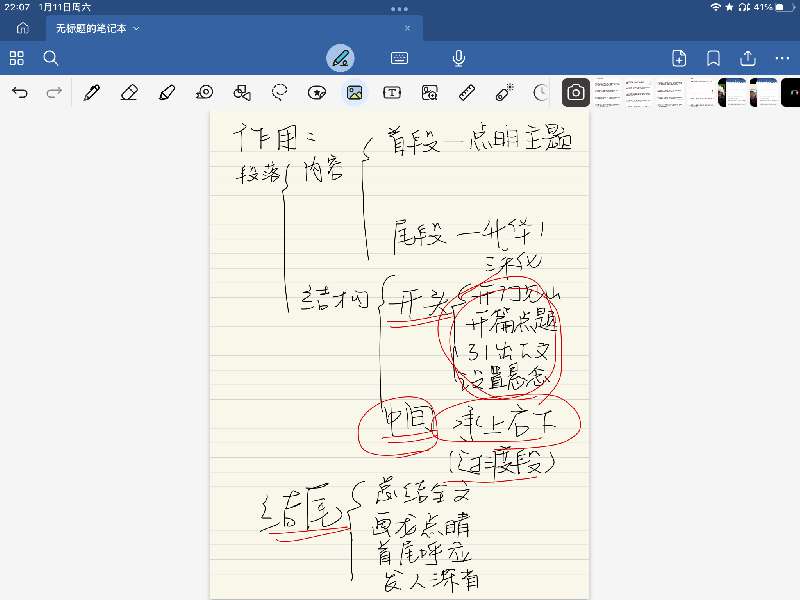 22:07 1月11日周六
41%
无标题的笔记本
作用：
段落 内容 首段—点明主题
尾段—升华
深化
结构 开头 开门见山
开篇点题
引出下文
设置悬念
中间 承上启下
(过渡段)
结尾 总结全文
画龙点睛
首尾呼应
发人深省